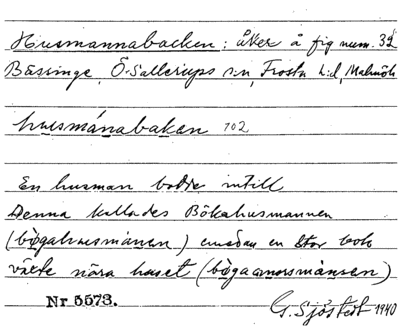 Husmannabacken: åker å fig num. 32
Bässinge, Ö. Sallerups sn, Frosta hd, Malmöh
husmánabakan 702
En husman bodde intill
Denna kallades Bökahusmannen
(bøgahusmánen) emedan en stor bok
växte nära huset (bøga
Nr 5573.
G. Sjöstedt 1940